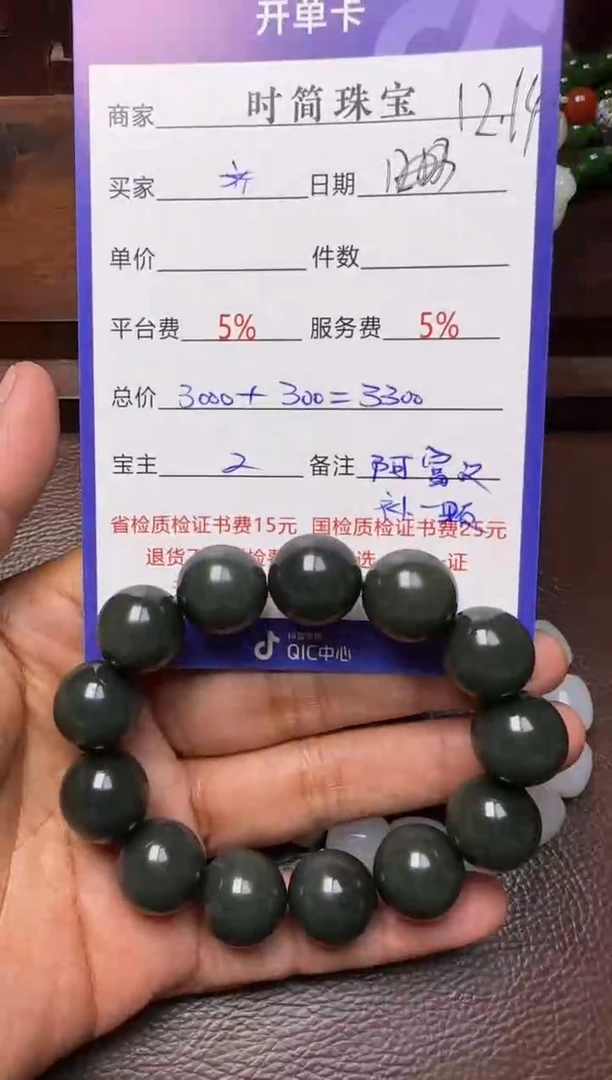 开单卡
商家 时简珠宝 12.14
买家 日期
单价 件数
平台费 5% 服务费 5%
总价 3000+300=3300
宝主 2 备注 阿富汉
补一颗
省检质检证书费15元 国检质检证书费25元
退货 检 选 证
QIC中心